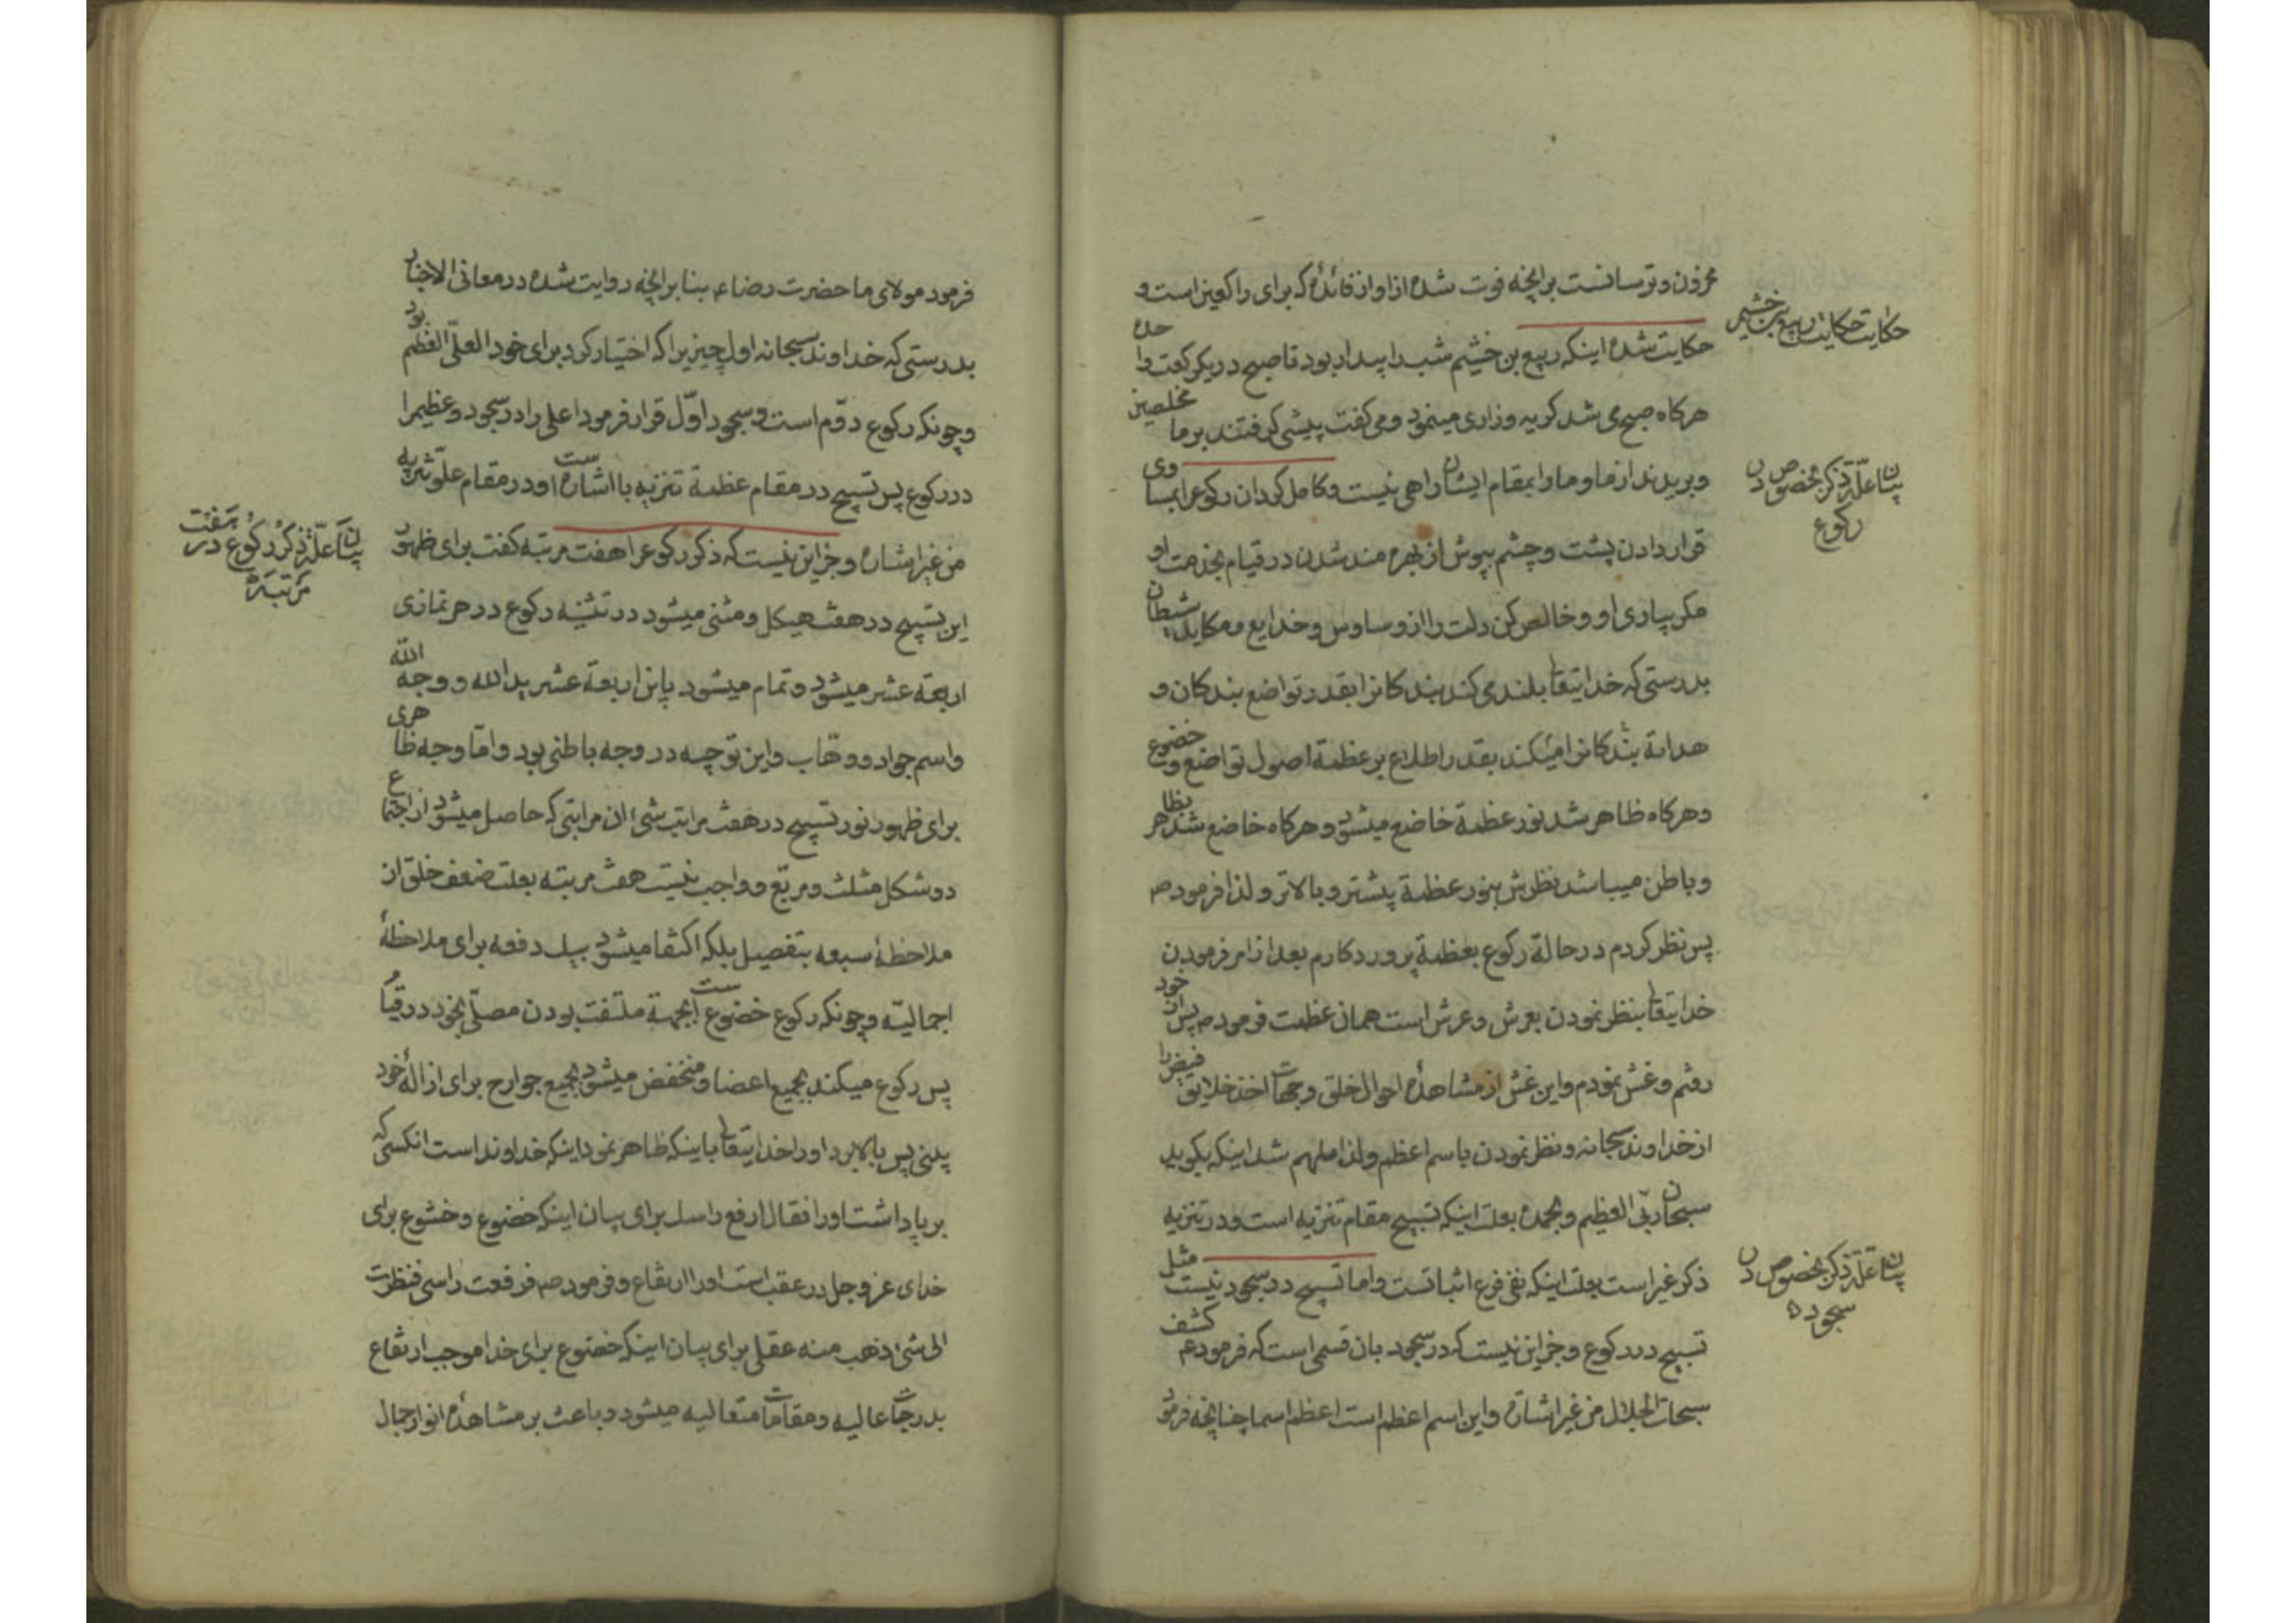 محزون و ترسانست برانچه فوت شده از او از فائدهٔ که برای راکعین است و
حکایت حکایت ربیع بن خشیم
حکایت شده اینکه ربیع بن خشیم شب را بیدار بود تا صبح در یکرکعت واحده
هرکاه صبح می شد کریه و زاری مینمود و می کفت پیشی کرفتند بر ما مخلصین
و بریدند از ما و ما را بمقام ایشان راهی نیست و کامل کردان رکوع را بمساوی
بیان علّة ذکر مخصوص در
رکوع
قرار دادن پشت و چشم بپوش از بهره مند شدن در قیام بخدمت او
مکر بیاری او و خالص کن دلت را از وساوس و خدایع و مکاید شیطان
بدرستی که خدایتعالی بلند می کند بندکانرا بقدر تواضع بندکان و
هدایة بندکانرا میکند بقدر اطلاع بر عظمة اصول تواضع و خضوع
و هرکاه ظاهر شد نور عظمة خاضع میشود و هرکاه خاضع شد بظاهر
و باطن میباشد نظرش بنور عظمة پیشتر و بالاتر و لذا فرمود ص
پس نظر کردم در حالة رکوع بعظمة پروردکارم بعد از امر فرمودن
خدایتعالی بنظر نمودن بعرش و عرش است همان عظمت فرمود ص پس از خود
رفتم و غش نمودم و این غش از مشاهدهٔ احوال خلق و جهات اخذ خلایق فیض را
از خداوند سبحانه و نظر نمودن باسم اعظم و لذا ملهم شد اینکه بکوید
سبحان ربّی العظیم و بحمده بعلت اینکه تسبیح مقام تنزیه است و در تنزیه
ذکر غیر است بعلت اینکه نفی فرع اثباتست و اما تسبیح در سجود نیست مثل
بیان علّة ذکر مخصوص در
سجود ه
تسبیح در رکوع و جز این نیست که در سجود بان قسمی است که فرمود ع کشف
سبحات الجلال من غیر اشارة و این اسم اعظم است اعظم اسما چنانچه فرمود
فرمود مولای ما حضرت رضا ع بنا برانچه روایت شده در معانی الاخبار
بدرستی که خداوند سبحانه اول چیزیرا که اختیار کرد برای خود العلّی العظیم بود
و چونکه رکوع دوّم است و سجود اوّل قرار فرمود اعلی را در سجود و عظیم را
در رکوع پس تسبیح در مقام عظمة تنزیه با اشاره است و در مقام علوّ تنزیه
من غیر اشاره و جز این نیست که ذکر رکوع را هفت مرتبه کفت برای ظهور
بیان علّة ذکر رکوع در هفت
مرتبه
این تسبیح در هفت هیکل و مثنی میشود در تثنیه رکوع در هر نمازی
اربعة عشر میشود و تمام میشود باین اربعة عشر ید الله و وجه الله
و اسم جواد و وهّاب و این توجیه در وجه باطنی بود و امّا وجه ظاهری
برای ظهور نور تسبیح در هفت مراتب شیء ان مراتبی که حاصل میشود از اجتماع
دو شکل مثلث و مربّع و واجب نیست هفت مرتبه بعلت ضعف خلق از
ملاحظهٔ سبعه بتفصیل بلکه اکتفا میشود بیک دفعه برای ملاحظهٔ
اجمالیّه و چونکه رکوع خضوع است بجهة ملتفت بودن مصلّی بخود در قیام
پس رکوع میکند بجمیع اعضا و منخفض میشود بجمیع جوارح برای ازالهٔ خود
بینی پس بالا برد او را خدایتعالی باینکه ظاهر نمود اینکه خداوند است انکسی که
برپا داشت او را فقال ارفع راسک برای بیان اینکه خضوع و خشوع برای
خدای عز و جل در عقب است او را ارتفاع و فرمود ص فرفعت راسی فنظرت
الی شیء ذهب منه عقلی برای بیان اینکه خضوع برای خدا موجب ارتفاع
بدرجات عالیه و مقامات متعالیه میشود و باعث بر مشاهدهٔ انوار جمال